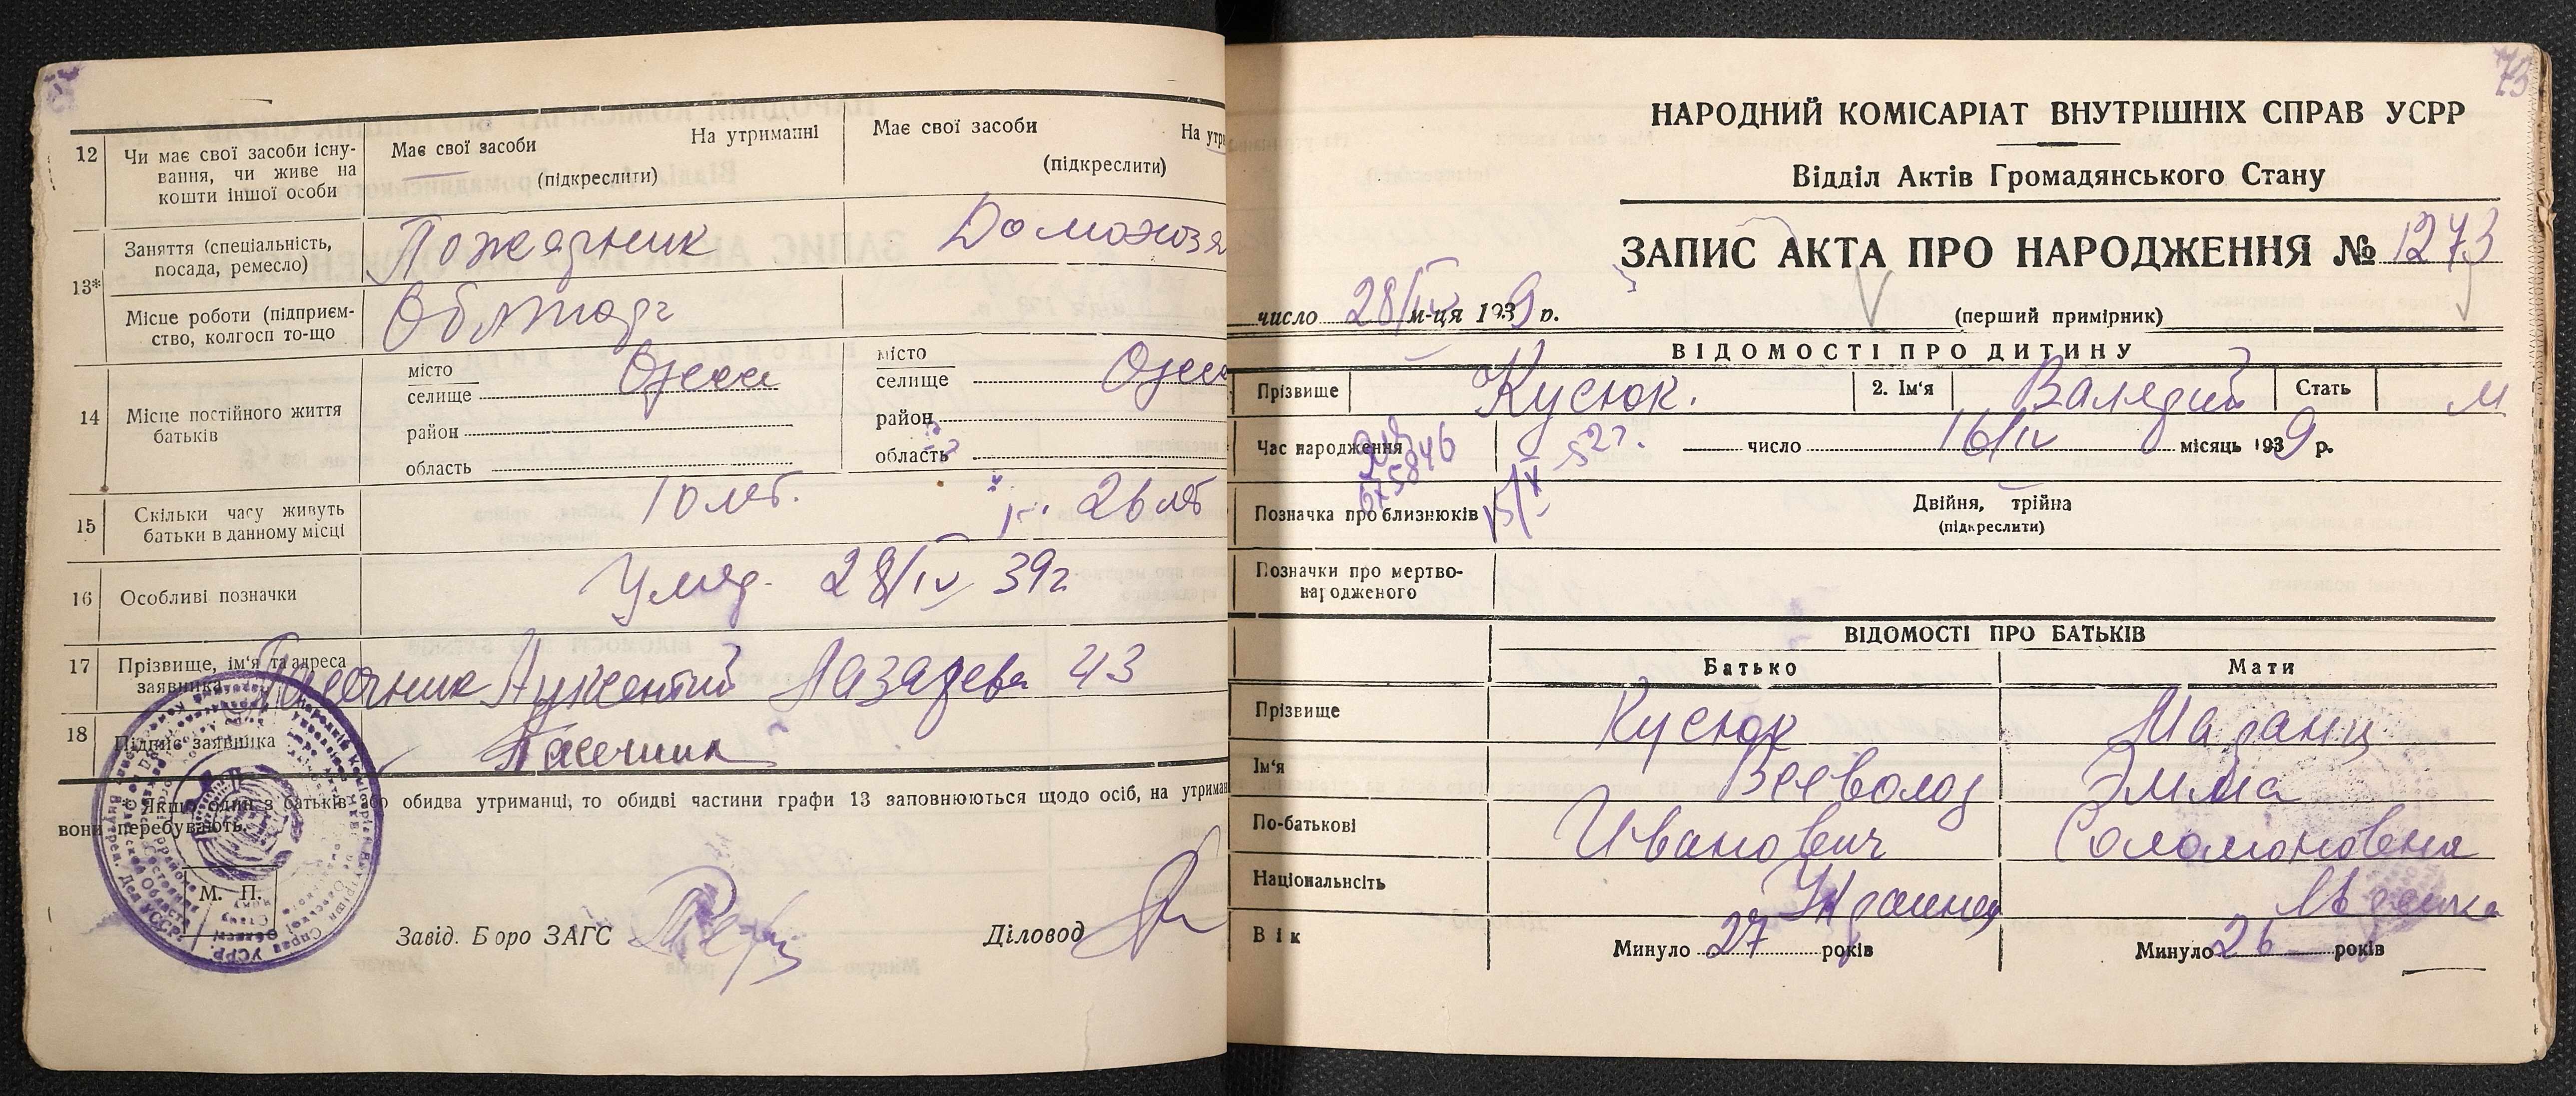 12
Чи має свої засоби існу-
вання, чи живе на
кошти іншої особи
Має свої засоби
На утриманні
(підкреслити)
Має свої засоби
На утри
(підкреслити)
13*
Заняття (спеціальність,
посада, ремесло)
Пожарник
Домохозя
Місце роботи (підприєм-
ство, колгосп то-що
14
Місце постійного життя
батьків
місто
селище
Одесса
район
область
місто
селище
Одесс
район
область
15
Скільки часу живуть
батьки в данному місці
10 лет.
26 лет
16
Особливі позначки
Умер. 28/IV 39г
17
Прізвище, ім'я та адреса
заявника
Пасечник Лазарева 43
18
Підпис заявника
Пасечник
* Якщо один з батьків або обидва утриманці, то обидві частини графи 13 заповнюються щодо осіб, на утриман
вони перебувають.
М. П.
Завід. Бюро ЗАГС
Діловод
73
НАРОДНИЙ КОМІСАРІАТ ВНУТРІШНІХ СПРАВ УСРР
Відділ Актів Громадянського Стану
ЗАПИС АКТА ПРО НАРОДЖЕННЯ № 1273
число 28/IV м-ця 1939 р.
(перший примірник)
ВІДОМОСТІ ПРО ДИТИНУ
Прізвище
Кусюк.
2. Ім'я
Валерий
Стать
М
Час народження
число 16/IV місяць 1939 р.
Позначка про близнюків
Двійня, трійна
(підкреслити)
Позначки про мертво-
народженого
ВІДОМОСТІ ПРО БАТЬКІВ
Батько
Мати
Прізвище
Кусюк
Маранц
Ім'я
Всеволод
Эмма
По-батькові
Иванович
Соломоновна
Національність
Украинец
Еврейка
Вік
Минуло 27 років
Минуло 26 років